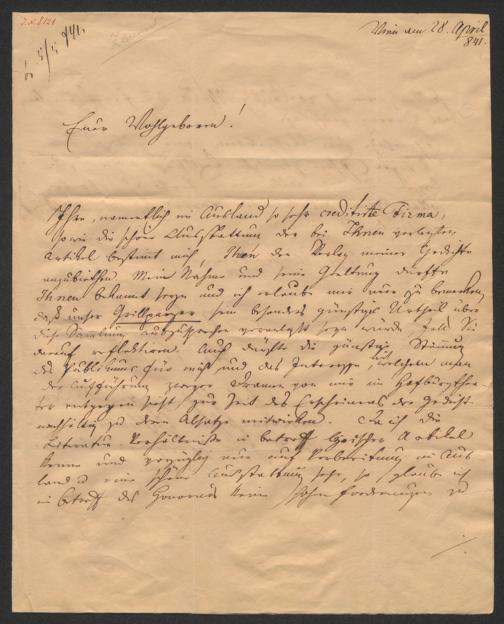 I.N. 8121
5/5 841.
Wien den 28. April
841.
Euer Wohlgeboren!
Ihre, namentlich im Ausland so sehr creditirte Firma,
sowie die schöne Ausstattung der bei Ihnen verlegten
Artikel bestimt mich, Ihnen den Verlag meiner Gedichte
anzubiethen. Mein Nahme und seine Geltung dürfte
Ihnen bekannt seyn und ich erlaube mir nur zu bemerken,
daß unser Grillparzer sein besonders günstiges Urtheil über
diese Samlung auszusprechen geneigt seyn würde, falls Sie
darauf reflektiren. Auch dürfte die günstige Stimung
des Publikums für mich und das Interesse, mit welchem man
der Aufführung zweyer Dramen von mir im Hofburgthea-
ter entgegen sieht, zur Zeit des Erscheinens der Gedichte
zu dem Absatze mitwirken. Da ich die
Literatur Verhältnisse in betreff solcher Artikel
kenne und vorzüglich nur auf Verbreitung im Aus
land u eine schöne Ausstattung sehe, so glaube ich
in betreff des Honorars keine hohen Forderungen zu